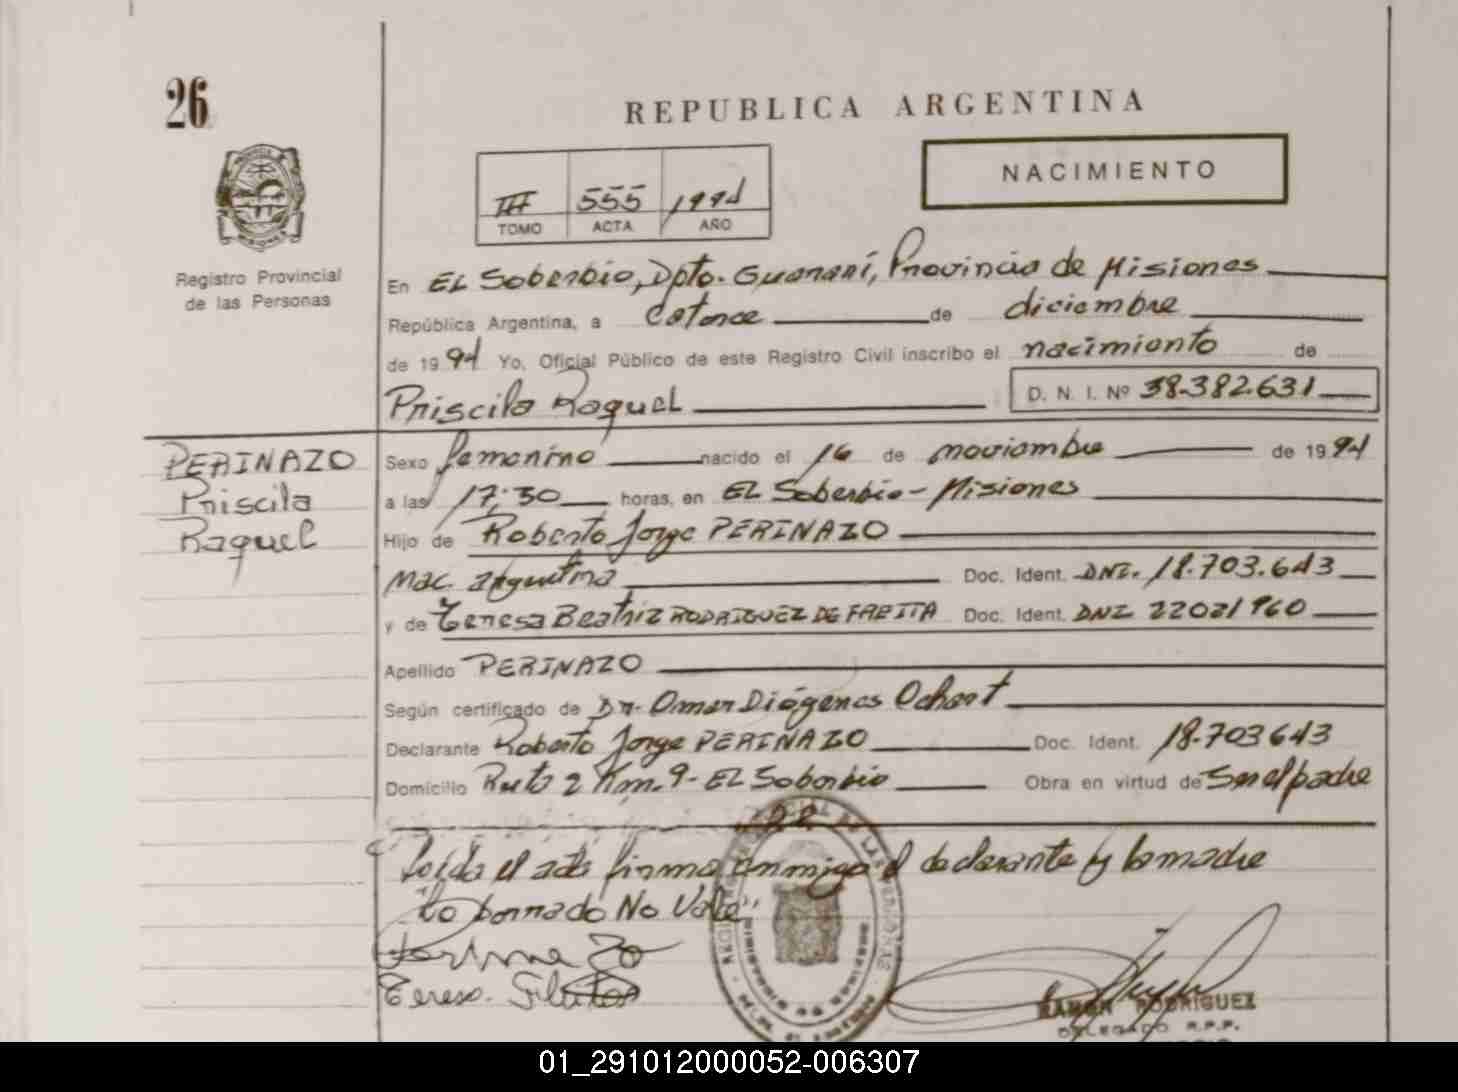 26
REPUBLICA ARGENTINA
NACIMIENTO
III 555 1994
TOMO ACTA AÑO
Registro Provincial
de las Personas
En EL Soberbio, Dpto. Guaraní, Provincia de Misiones
República Argentina, a Catorce de diciembre
de 1994 Yo, Oficial Público de este Registro Civil inscribo el nacimiento de
Priscila Raquel D. N. I. Nº 38.382.631
PERINAZO
Priscila
Raquel
Sexo femenino nacido el 16 de noviembre de 1994
a las 17:30 horas, en EL Soberbio - Misiones
Hijo de Roberto Jorge PERINAZO
Nac. argentina Doc. Ident. DNI. 18.703.643
y de Teresa Beatriz RODRIGUEZ DE FREITA Doc. Ident. DNI 22021960
Apellido PERINAZO
Según certificado de Dr. Omar Diógenes Ochart
Declarante Roberto Jorge PERINAZO Doc. Ident. 18.703643
Domicilio Ruta 2 Km. 9 - EL Soberbio Obra en virtud de Ser el padre
Leída el acta firma conmigo el declarante y la madre
"Lo borrado No Vale"
Perinazo
Teresa
RAMON RODRIGUEZ
DELEGADO R.P.P.
01_291012000052-006307